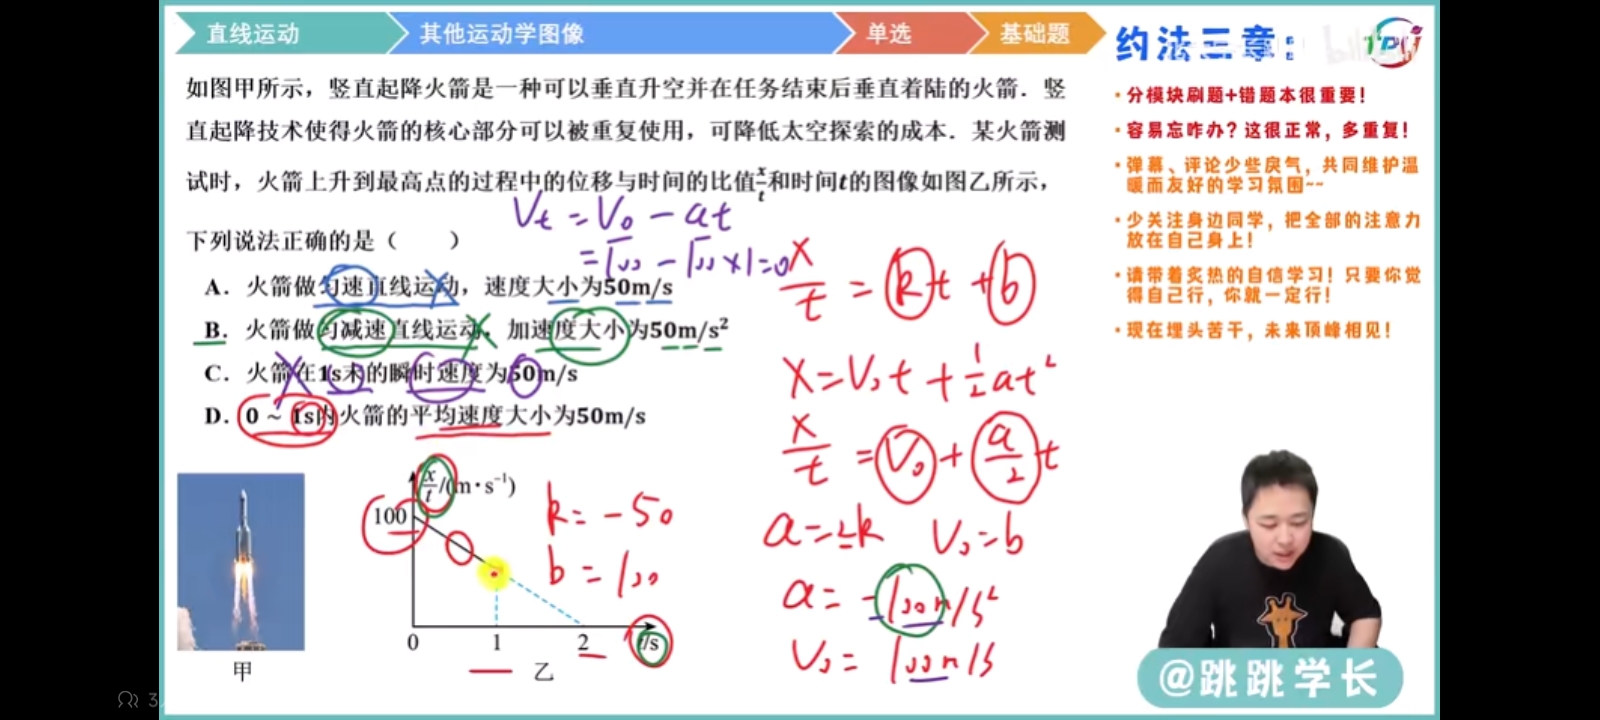 直线运动
其他运动学图像
单选
基础题
如图甲所示，竖直起降火箭是一种可以垂直升空并在任务结束后垂直着陆的火箭．竖
直起降技术使得火箭的核心部分可以被重复使用，可降低太空探索的成本．某火箭测
试时，火箭上升到最高点的过程中的位移与时间的比值x/t和时间t的图像如图乙所示，
下列说法正确的是（　　）
A．火箭做匀速直线运动，速度大小为50m/s
B．火箭做匀减速直线运动，加速度大小为50m/s²
C．火箭在1s末的瞬时速度为50m/s
D．0 ~ 1s内火箭的平均速度大小为50m/s
Vt = V0 - at
= 100 - 100×1=0
x/t = kt + b
x=V0t + 1/2 at²
x/t = V0 + a/2 t
a=2k V0=b
a= -100m/s²
V0= 100m/s
x/t/(m·s⁻¹)
100
0 1 2 t/s
k= -50
b = 100
甲
乙
约法三章：
·分模块刷题+错题本很重要！
·容易忘咋办？这很正常，多重复！
·弹幕、评论少些戾气，共同维护温
暖而友好的学习氛围~~
·少关注身边同学，把全部的注意力
放在自己身上！
·请带着炙热的自信学习！只要你觉
得自己行，你就一定行！
·现在埋头苦干，未来顶峰相见！
@跳跳学长